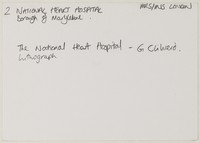 2 NATIONAL HEART HOSPITAL
Borough of Marylebone.
The National Heart Hospital - G
Lithograph